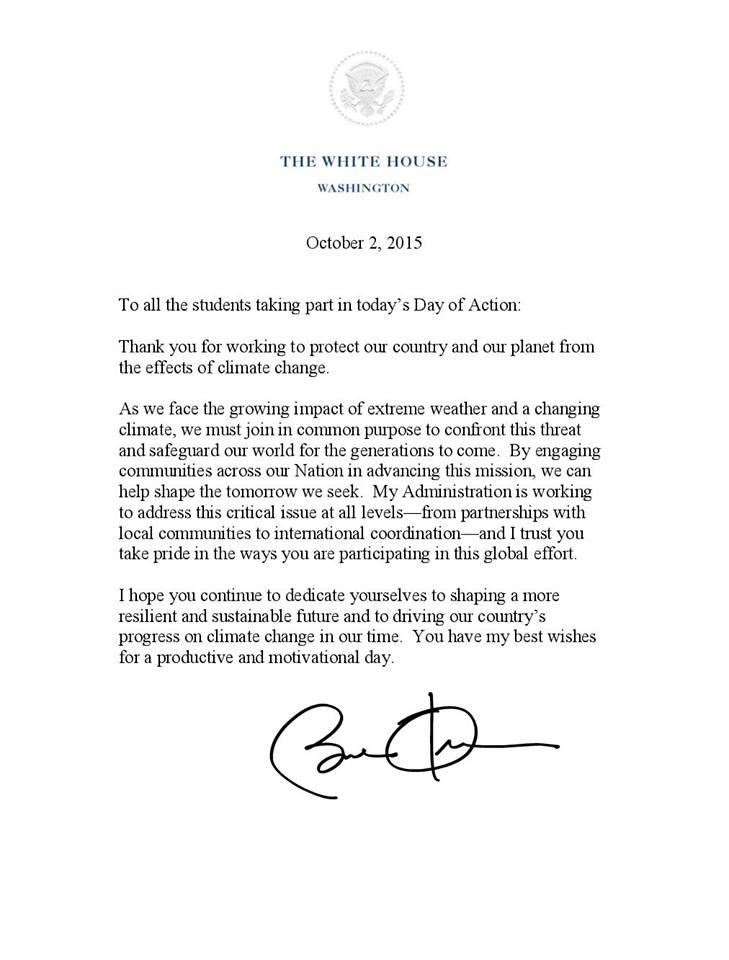 THE WHITE HOUSE
WASHINGTON
October 2, 2015
To all the students taking part in today’s Day of Action:
Thank you for working to protect our country and our planet from
the effects of climate change.
As we face the growing impact of extreme weather and a changing
climate, we must join in common purpose to confront this threat
and safeguard our world for the generations to come.  By engaging
communities across our Nation in advancing this mission, we can
help shape the tomorrow we seek.  My Administration is working
to address this critical issue at all levels—from partnerships with
local communities to international coordination—and I trust you
take pride in the ways you are participating in this global effort.
I hope you continue to dedicate yourselves to shaping a more
resilient and sustainable future and to driving our country’s
progress on climate change in our time.  You have my best wishes
for a productive and motivational day.